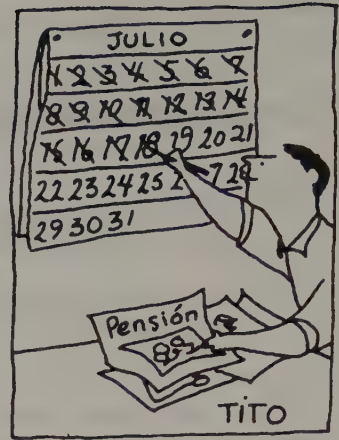 JULIO
1 2 3 4 5 6 7
8 9 10 11 12 13 14
15 16 17 18 29 20 21
22 23 24 25 2 7 28
29 30 31
Pensión
TITO